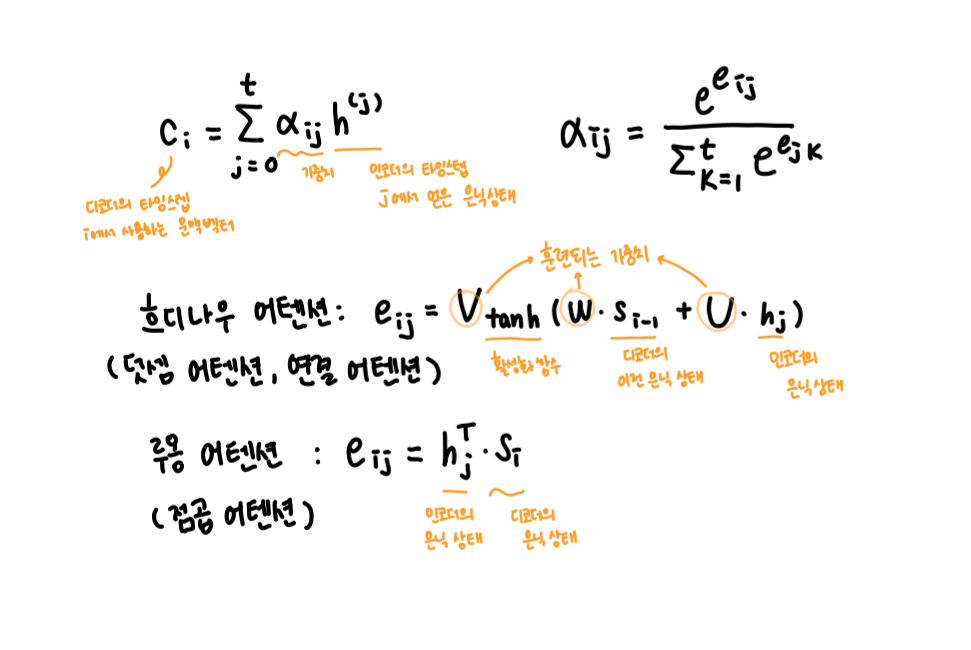 cᵢ = Σ_{j=0}^{t} αᵢⱼ h⁽ʲ⁾
가중치
인코더의 타임스텝
j에서 얻은 은닉상태
디코더의 타임스텝
i에서 사용하는 문맥벡터
αᵢⱼ = e^{eᵢⱼ} / Σ_{K=1}^{t} e^{e_{jK}}
훈련되는 가중치
흐디나우 어텐션 : eᵢⱼ = V tanh (W · s_{i-1} + U · hⱼ)
(덧셈 어텐션, 연결 어텐션)
활성화 함수
디코더의
이전 은닉 상태
인코더의
은닉 상태
루옹 어텐션 : eᵢⱼ = hⱼᵀ · sᵢ
(점곱 어텐션)
인코더의
은닉 상태
디코더의
은닉 상태